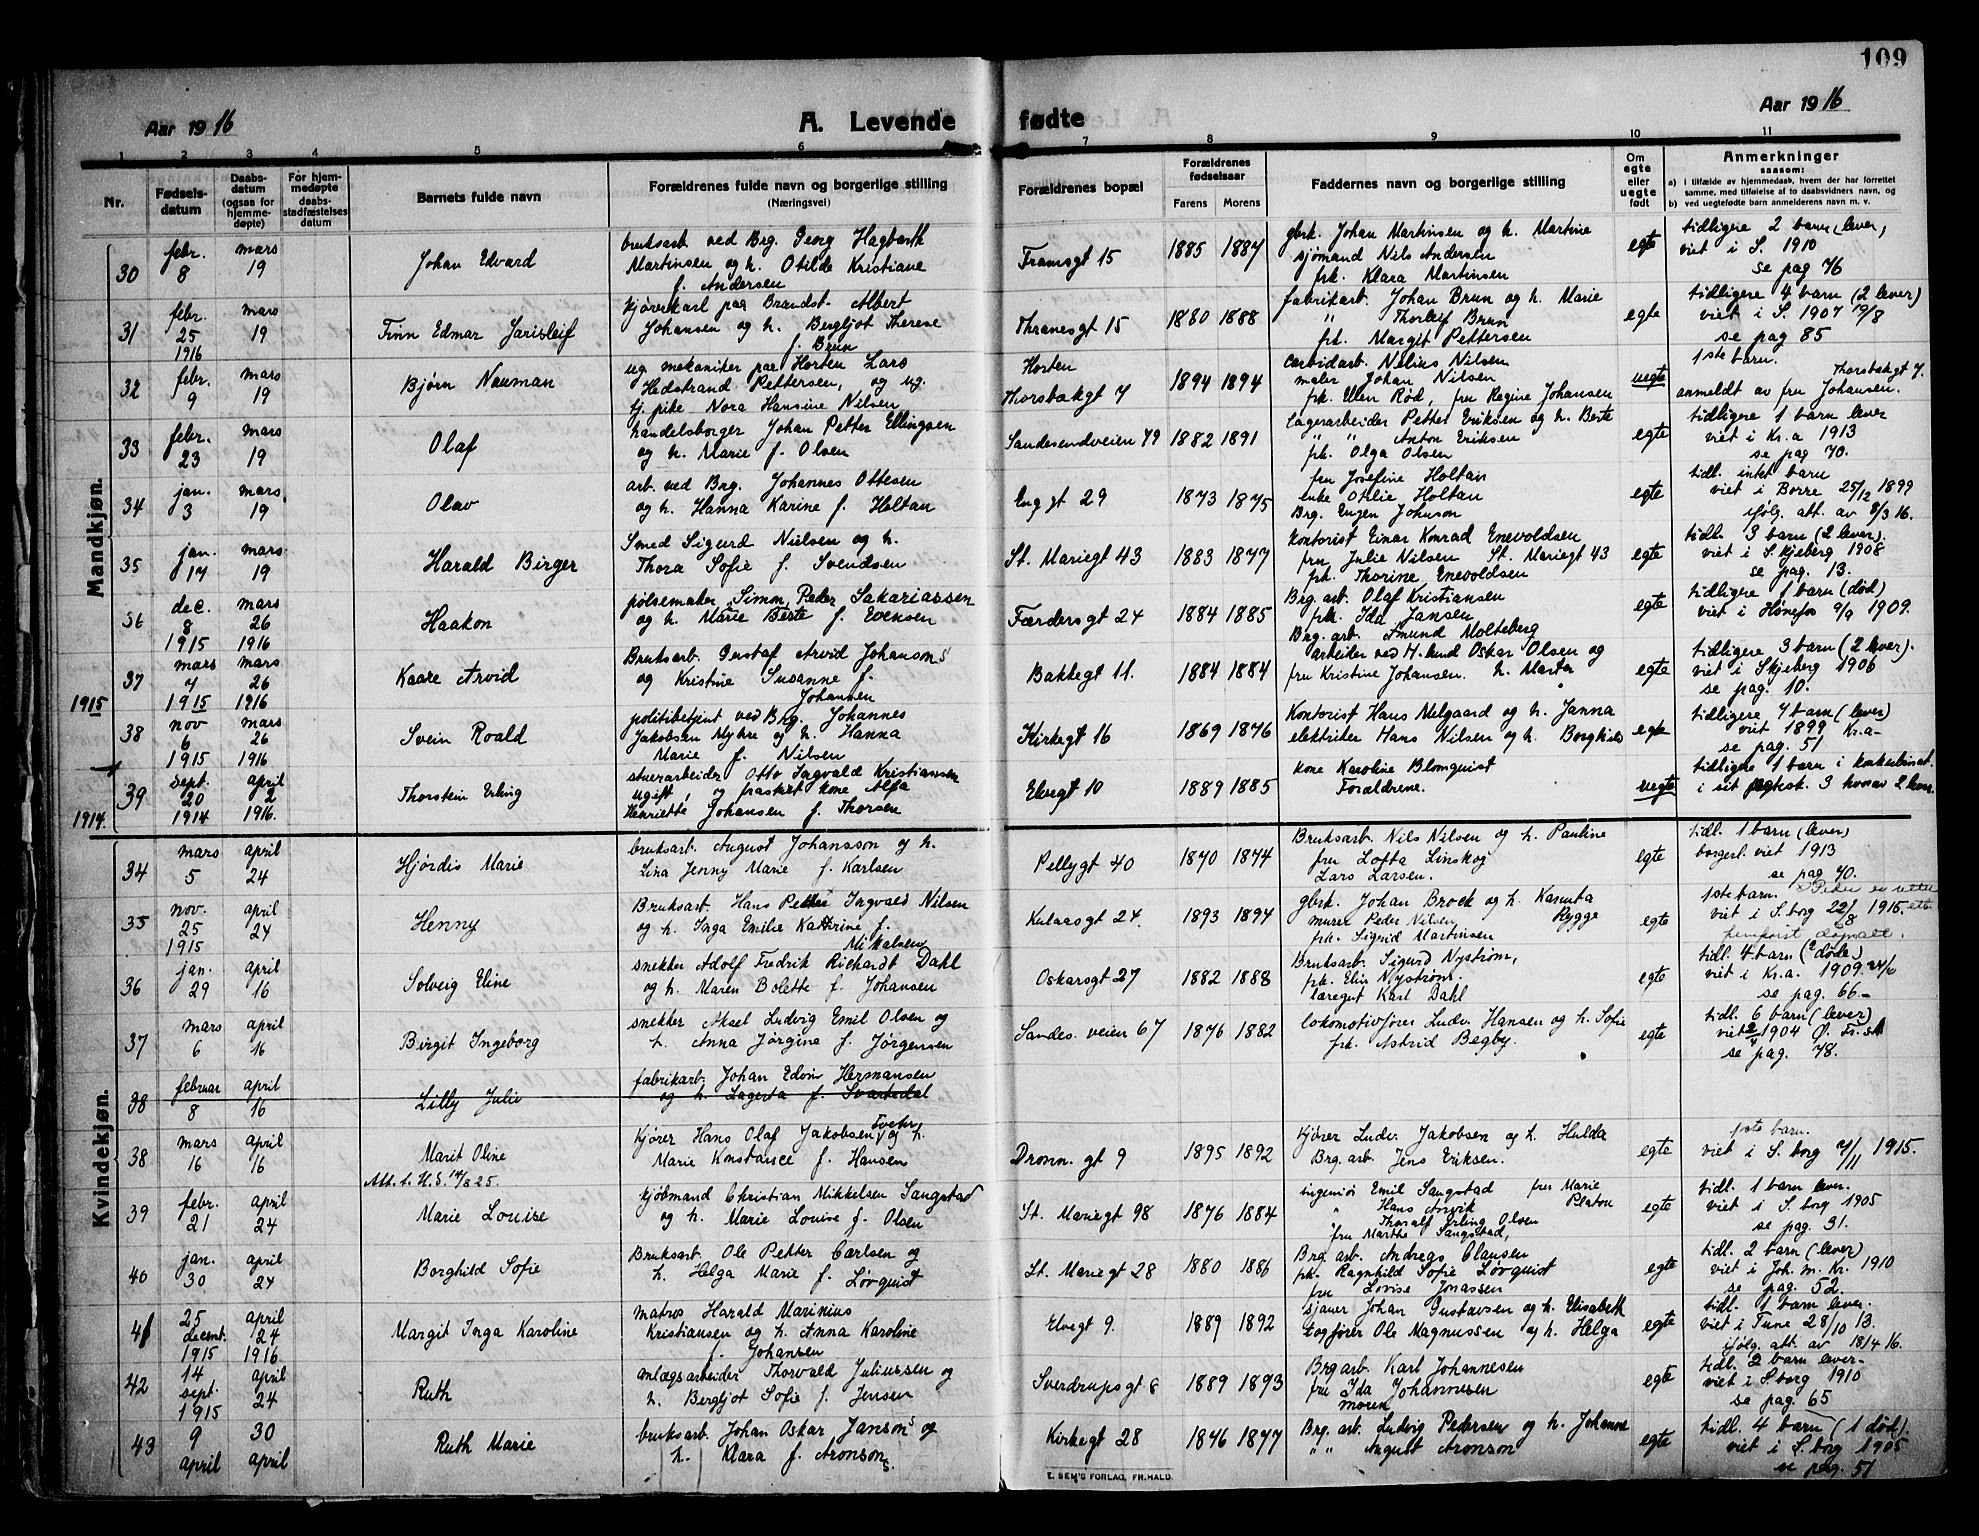 109
Aar 1916
A. Levende fødte
Aar 1916
1 2 3 4 5 6 7 8 9 10 11
Nr.
Fødsels-datum
Daabs-datum (ogsaa for hjemme-døpte)
For hjem-medøpte daabs-stadfæstelses datum
Barnets fulde navn
Forældrenes fulde navn og borgerlige stilling (Næringsvei)
Forældrenes bopæl
Forældrenes fødselsaar
Farens Morens
Faddernes navn og borgerlige stilling
Om egte eller uegte født
Anmerkninger saasom:
a) i tilfælde av hjemmedaab, hvem der har forrettet samme, med tilføielse af to daabsvidners navn, og
b) ved uegtefødte barn anmelderens navn m. v.
Mandkjøn.
30 febr. 8 mars 19 Johan Edvard
bruksarb. ved Brg. Georg Hagbarth
Martinsen og h. Otilde Kristiane
f. Andersen
Framsgt 15 1885 1887
gbrk. Johan Martinsen og h. Martine
sjømand Nils Andersen
frk. Klara Martinsen
egte
tidligere 2 barn, lever,
viet i S. 1910
se pag 76
31 febr. 25 1916 mars 19 Finn Edmar Jarisleif
kjørerkarl paa Brandst. Albert
Johansen og h. Bergljot Therese
f. Brun
Thranesgt 15 1880 1888
fabrikarb. Johan Brun og h. Marie
" Thorleif Brun
frk. Margit Pettersen
egte
tidligere 4 barn (2 lever)
viet i S. 1907 19/8
se pag 85
32 febr. 9 mars 19 Bjørn Nauman
ug. mekaniker paa Horten Lars
Hedstrand Pettersen, og ug.
tj. pike Nora Hansine Nilsen
Horten
Thorsbakgt 7 1894 1894
carbidarb. Nelius Nilsen
maler Johan Nilsen
frk. Ellen Rød, fru Regine Johansen
uegte
1ste barn.
Thorsbakgt 7.
anmeldt av fru Johansen.
33 febr. 23 mars 19 Olaf
handelsborger Johan Petter Ellingsen
og h. Marie f. Olsen
Sandesundveien 79 1882 1891
lagerarbeider Petter Eriksen og h. Berte
" " Anton Eriksen
frk. Olga Olsen
egte
tidligere 1 barn lever
viet i Kr.a 1913
se pag 70.
34 jan. 3 mars 19 Olav
arb. ved Brg. Johannes Ottesen
og h. Hanna Karine f. Holtan
Enggt 29 1873 1875
fru Josefine Holtan
enke Otilie Holtan
Brg. Eugen Johnson
egte
tidl. intet barn
viet i Borre 25/12 1899
ifølg. att. av 8/3 16.
35 jan. 17 mars 19 Harald Birger
Smed Sigurd Nielsen og h.
Thora Sofie f. Svendsen
St. Mariegt 43 1883 1877
kontorist Einar Konrad Enevoldsen
fru Julie Nilsen St. Mariegt 43
frk. Thorine Enevoldsen
egte
tidl. 3 barn (2 lever).
viet i Skjeberg 1908
se pag. 13.
36 dec. 8 1915 mars 26 1916 Haakon
pølsemaker Simon Peder Sakariassen
og h. Marie Berte f. Evensen
Færdersgt 24 1884 1885
Brg. arb. Olaf Kristiansen
frk. Ida Jansen
Brg. arb. Amund Molteberg
egte
tidligere 1 barn (død)
viet i Hønefos 9/9 1909.
37 mars 7 1915 mars 26 1916 Kaare Arvid
Bruksarb. Gustaf Arvid Johansons
og Kristine Susanne f.
Johansen
Bakkegt 11. 1884 1884
arbeider ved H.lund Oskar Olsen og
fru Kristine Johansen. h. Marta
egte
tidligere 3 barn (2 lever).
viet i Skjeberg 1906
se pag. 10.
1915
38 nov 6 1915 mars 26 1916 Svein Roald
politibetjent ved Brg. Johannes
Jakobsen Myhre og h. Hanna
Marie f. Nilsen
Kirkegt 16 1869 1876
Kontorist Hans Melgaard og h. Janna
elektriker Hans Nilsen og h. Borghild
egte
tidligere 4 barn (lever)
viet 1899 Kr.a-
se pag. 51
39 sept. 20 1914 april 2 1916. Thorstein Erling
stuerarbeider Otto Ingvald Kristiansen
ugift, og fraskilt kone Alfa
Henriette Johansen f. Thorsen
Elvegt 10 1889 1885
kone Karoline Blomquist
Forældrene.
uegte
tidligere 1 barn i konkubinat.
i sit egtesk. 3 hvorav 2 lever.
1914.
Kvindekjøn.
34 mars 5 april 24 Hjørdis Marie
bruksarb. August Johansson og h.
Lina Jenny Marie f. Karlsen
Pellygt 40 1870 1874
Bruksarb. Nils Nilsen og h. Pauline
fru Lotta Linskog
Lars Larsen.
egte
tidl. 1 barn (lever)
borgerl. viet 1913
se pag 70.
35 nov. 25 1915 april 24 Henny
Bruksarb. Hans Petter Ingvald Nilsen
og h. Inga Emilie Kathrine f.
Mikalsen
Kulaasgt 24. 1893 1894
gbrk. Johan Brock og h. Kanuta
murer Peder Nilsen, Rygge
frk. Sigrid Martinsen
egte
1ste barn.
viet i S.borg 22/8 1915.
36 jan. 29 april 16 Solveig Eline
snekker Adolf Fredrik Richardt Dahl
og h. Maren Bolette f. Johansen
Oskarsgt 27 1882 1888
Bruksarb. Sigurd Nystrøm,
frk. Elin Nystrøm.
læregut Karl Dahl
egte
tidl. 4 barn (2 døde)
viet i Kr.a. 1909. 24/6
se pag. 66-
37 mars 6 april 16 Birgit Ingeborg
snekker Aksel Ludvig Emil Olsen og
h. Anna Jørgine f. Jørgensen
Sandes. veien 67 1876 1882
lokomotivfører Ludv. Hansen og h. Sofie
frk. Astrid Begby.
egte
tidl. 6 barn (lever)
viet 1904 Ø. Fr.st
se pag. 78.
38 februar 8 april 16 Lilly Julie
fabrikarb. Johan Edvin Hermansen
og h. Lagerta f. Svartedal
38 mars 16 april 16 Marit Oline
Att. t. H.S. 14/8 25.
Kjører Hans Olaf Jakobsen Tveter og h.
Marie Konstance f. Hansen
Dronn. gt 9 1895 1892
kjører Ludv. Jakobsen og h. Hulda
Brg. arb. Jens Eriksen.
egte
1ste barn.
viet i S.borg 7/11 1915.
39 febr. 21 april 24 Marie Louise
kjøbmand Christian Mikkelsen Sangstad
og h. Marie Louise f. Olsen
St. Mariegt 98 1876 1884
ingeniør Emil Sangstad fru Marie
" Hans Anvik Platou
" Thoralf Erling Olsen
fru Marthe Sangstad,
egte
tidl. 1 barn lever.
viet i S.borg 1905
se pag. 31.
40 jan. 30 april 24 Borghild Sofie
Bruksarb. Ole Petter Carlsen og
h. Helga Marie f. Løvquist
St. Mariegt 28 1880 1886
Brg. arb. Andreas Clausen
frk. Ragnhild Sofie Løvquist
fru Lovise Jonassen
egte
tidl. 2 barn (lever)
viet i Joh. m. Kr. 1910
se pag. 52.
41 25 decemt. 1915 april 24 1916 Margit Inga Karoline
matros Harald Marinius
Kristiansen og h. Anna Karoline
f. Johansen
Elvegt 9. 1889 1892
sjauer Johan Gustavsen og h. Elisabeth
togfører Ole Magnussen og h. Helga
egte
tidl. 1 barn lever.
viet i Tune 28/10 13.
ifølg. att. av 18/4 16.
42 14 sept. 1915 april 24 Ruth
anlægsarbeider Thorvald Juliussen og
h. Bergljot Sofie f. Jensen
Sverdrupsgt 8 1889 1893
Brg arb. Karl Johannesen
fru Ida Johannesen
moren
egte
tidl. 2 barn lever-
viet i S.borg 1910
se pag. 65
43 9 april 30 april Ruth Marie
bruksarb. Johan Oskar Jansons og
h. Klara f. Aronsons.
Kirkegt 28 1876 1877
Brg. arb. Ludvig Pedersen og h. Johanne
" " August Aronson
egte
tidl. 4 barn (1 død).
viet i S.borg 1905
se pag. 51
E. SEM'S FORLAG, FR.HALD.